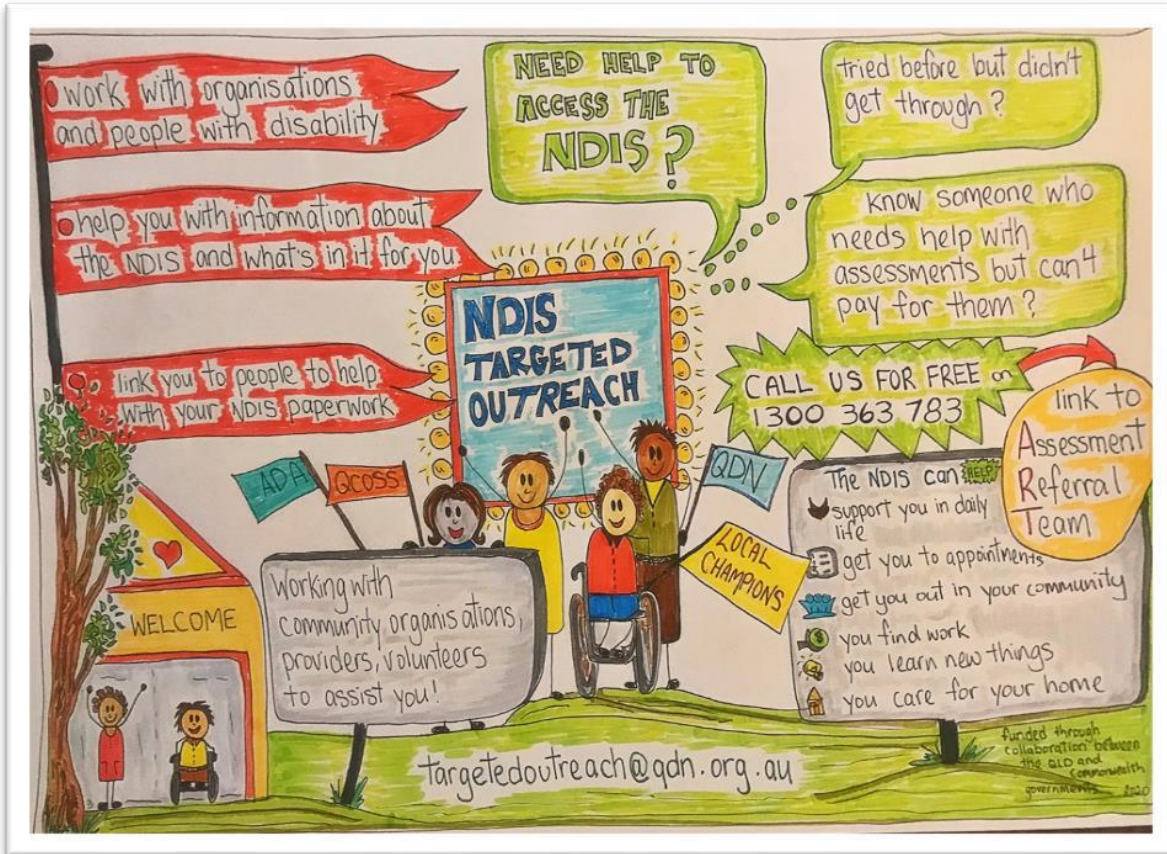 work with organisations
and people with disability
help you with information about
the NDIS and what's in it for you
link you to people to help
with your NDIS paperwork
NEED HELP TO
ACCESS THE
NDIS?
tried before but didn't
get through?
know someone who
needs help with
assessments but can't
pay for them?
NDIS
TARGETED
OUTREACH
CALL US FOR FREE on
1300 363 783
link to
Assessment
Referral
Team
ADA
QCOSS
QDN
LOCAL
CHAMPIONS
WELCOME
Working with
community organisations,
providers, volunteers
to assist you!
The NDIS can HELP
support you in daily
life
get you to appointments
get you out in your community
you find work
you learn new things
you care for your home
targetedoutreach@qdn.org.au
funded through
collaboration between
the QLD and
Commonwealth
governments 2020